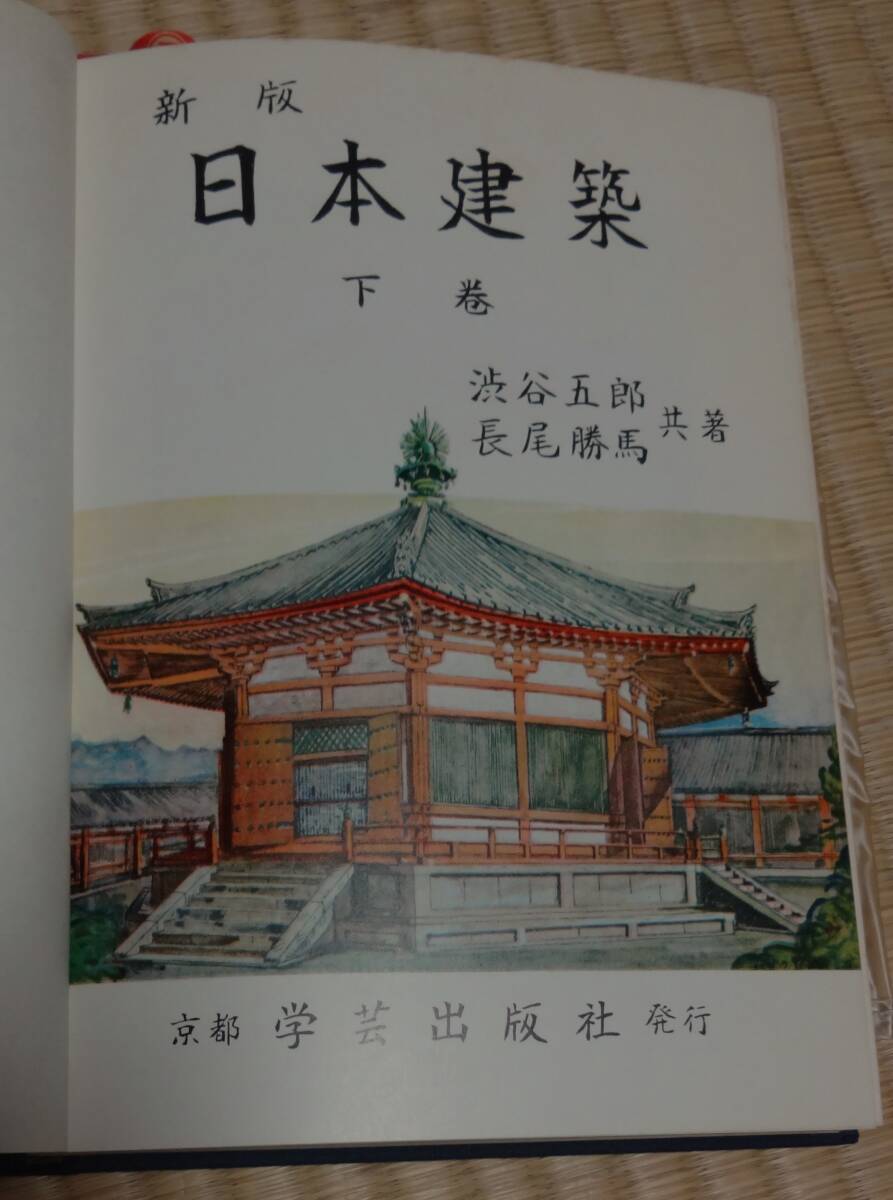 新版
日本建築
下巻
渋谷五郎
長尾勝馬 共著
京都 学芸出版社 発行